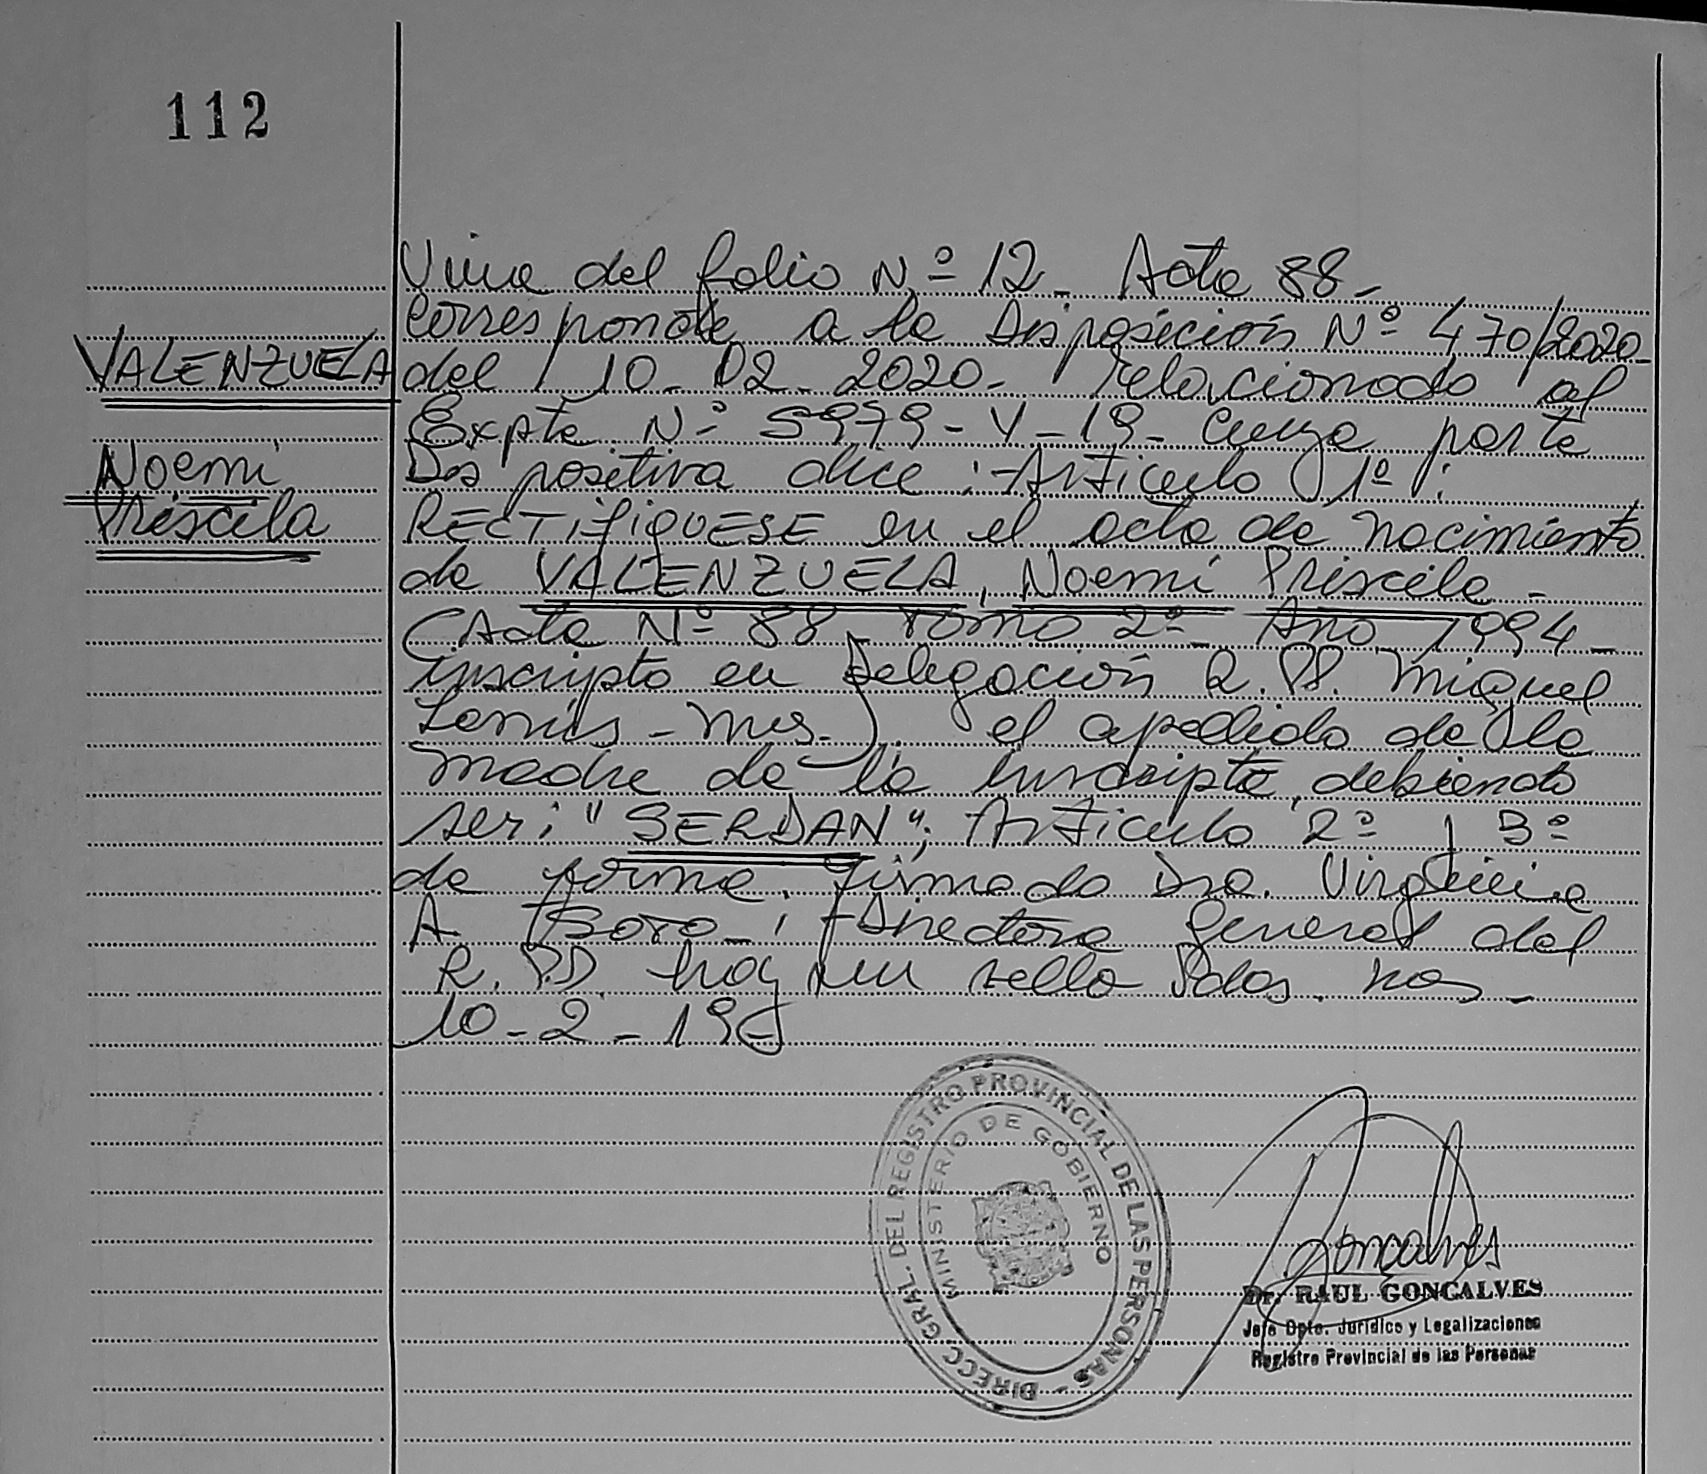 112
Viene del folio Nº 12 - Acta 88 -
Corresponde a la Disposición Nº 470/2020-
VALENZUELA
del 10 - 02 - 2020 - relacionado al
Expte Nº 5979 - Y - 19 - cuya parte
Noemi
Dispositiva dice : Artículo 1º :
Priscila
RECTIFIQUESE en el acta de nacimiento
de VALENZUELA, Noemi Priscila -
(Acta Nº 88 - Tomo 2º - Año 1994 -
inscripta en Delegación R.PP. Miguel
Lanús - Mis.) el apellido de la
madre de la inscripta, debiendo
ser: "SERDAN"; Artículo 2º y 3º
de forma. Firmado Dra. Virginia
A - Directora General del
R.PP hay un sello Pdas.
10 - 2 -
DIRECC. GRAL. DEL REGISTRO PROVINCIAL DE LAS PERSONAS -
MINISTERIO DE GOBIERNO
Goncalves
Dr. RAUL GONCALVES
Jefe Dpto. Jurídico y Legalizaciones
Registro Provincial de las Personas